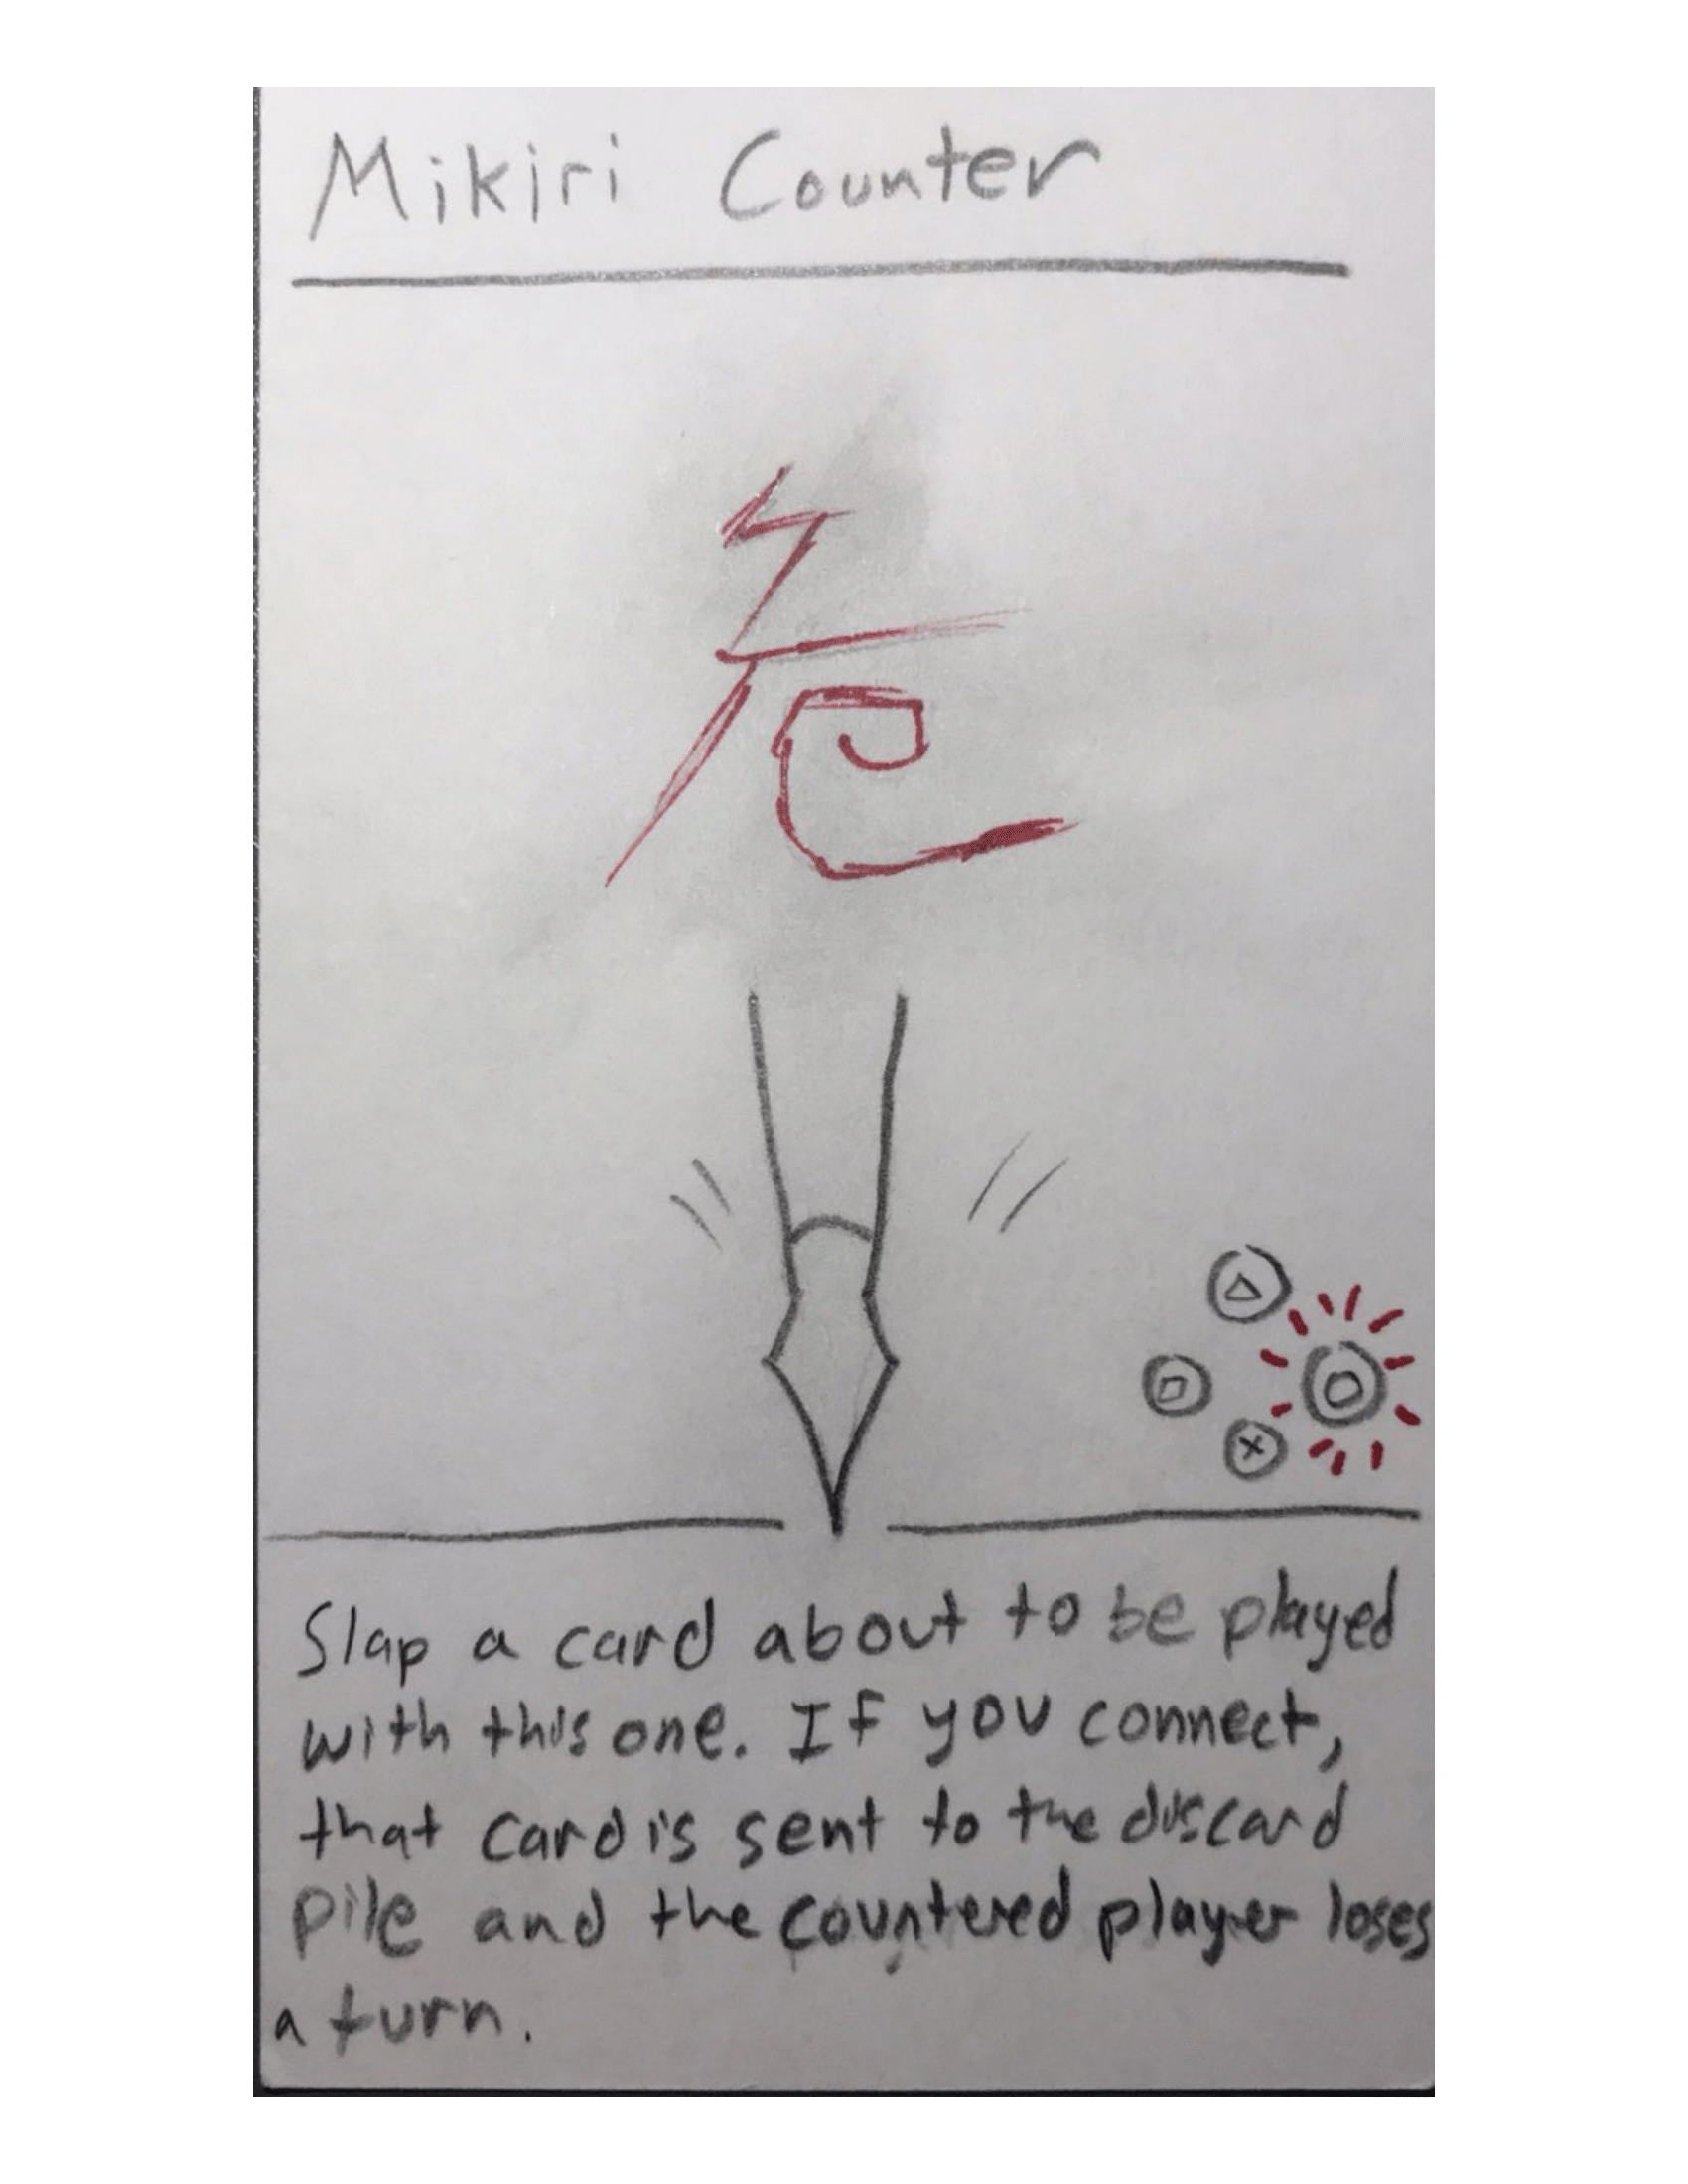 Mikiri Counter
危
Slap a card about to be played
with this one. If you connect,
that card is sent to the discard
pile and the countered player loses
a turn.